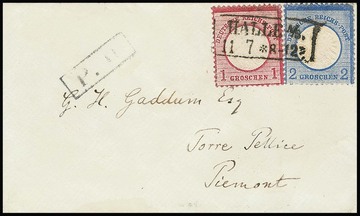 DEUTSCHE REICHS-POST
DEUTSCHE REICHS-POST
HALLE
1 7 *8-12
1 GROSCHEN 1
2 GROSCHEN 2
G. H. Gaddum Esq
Torre Pellice
Piemont